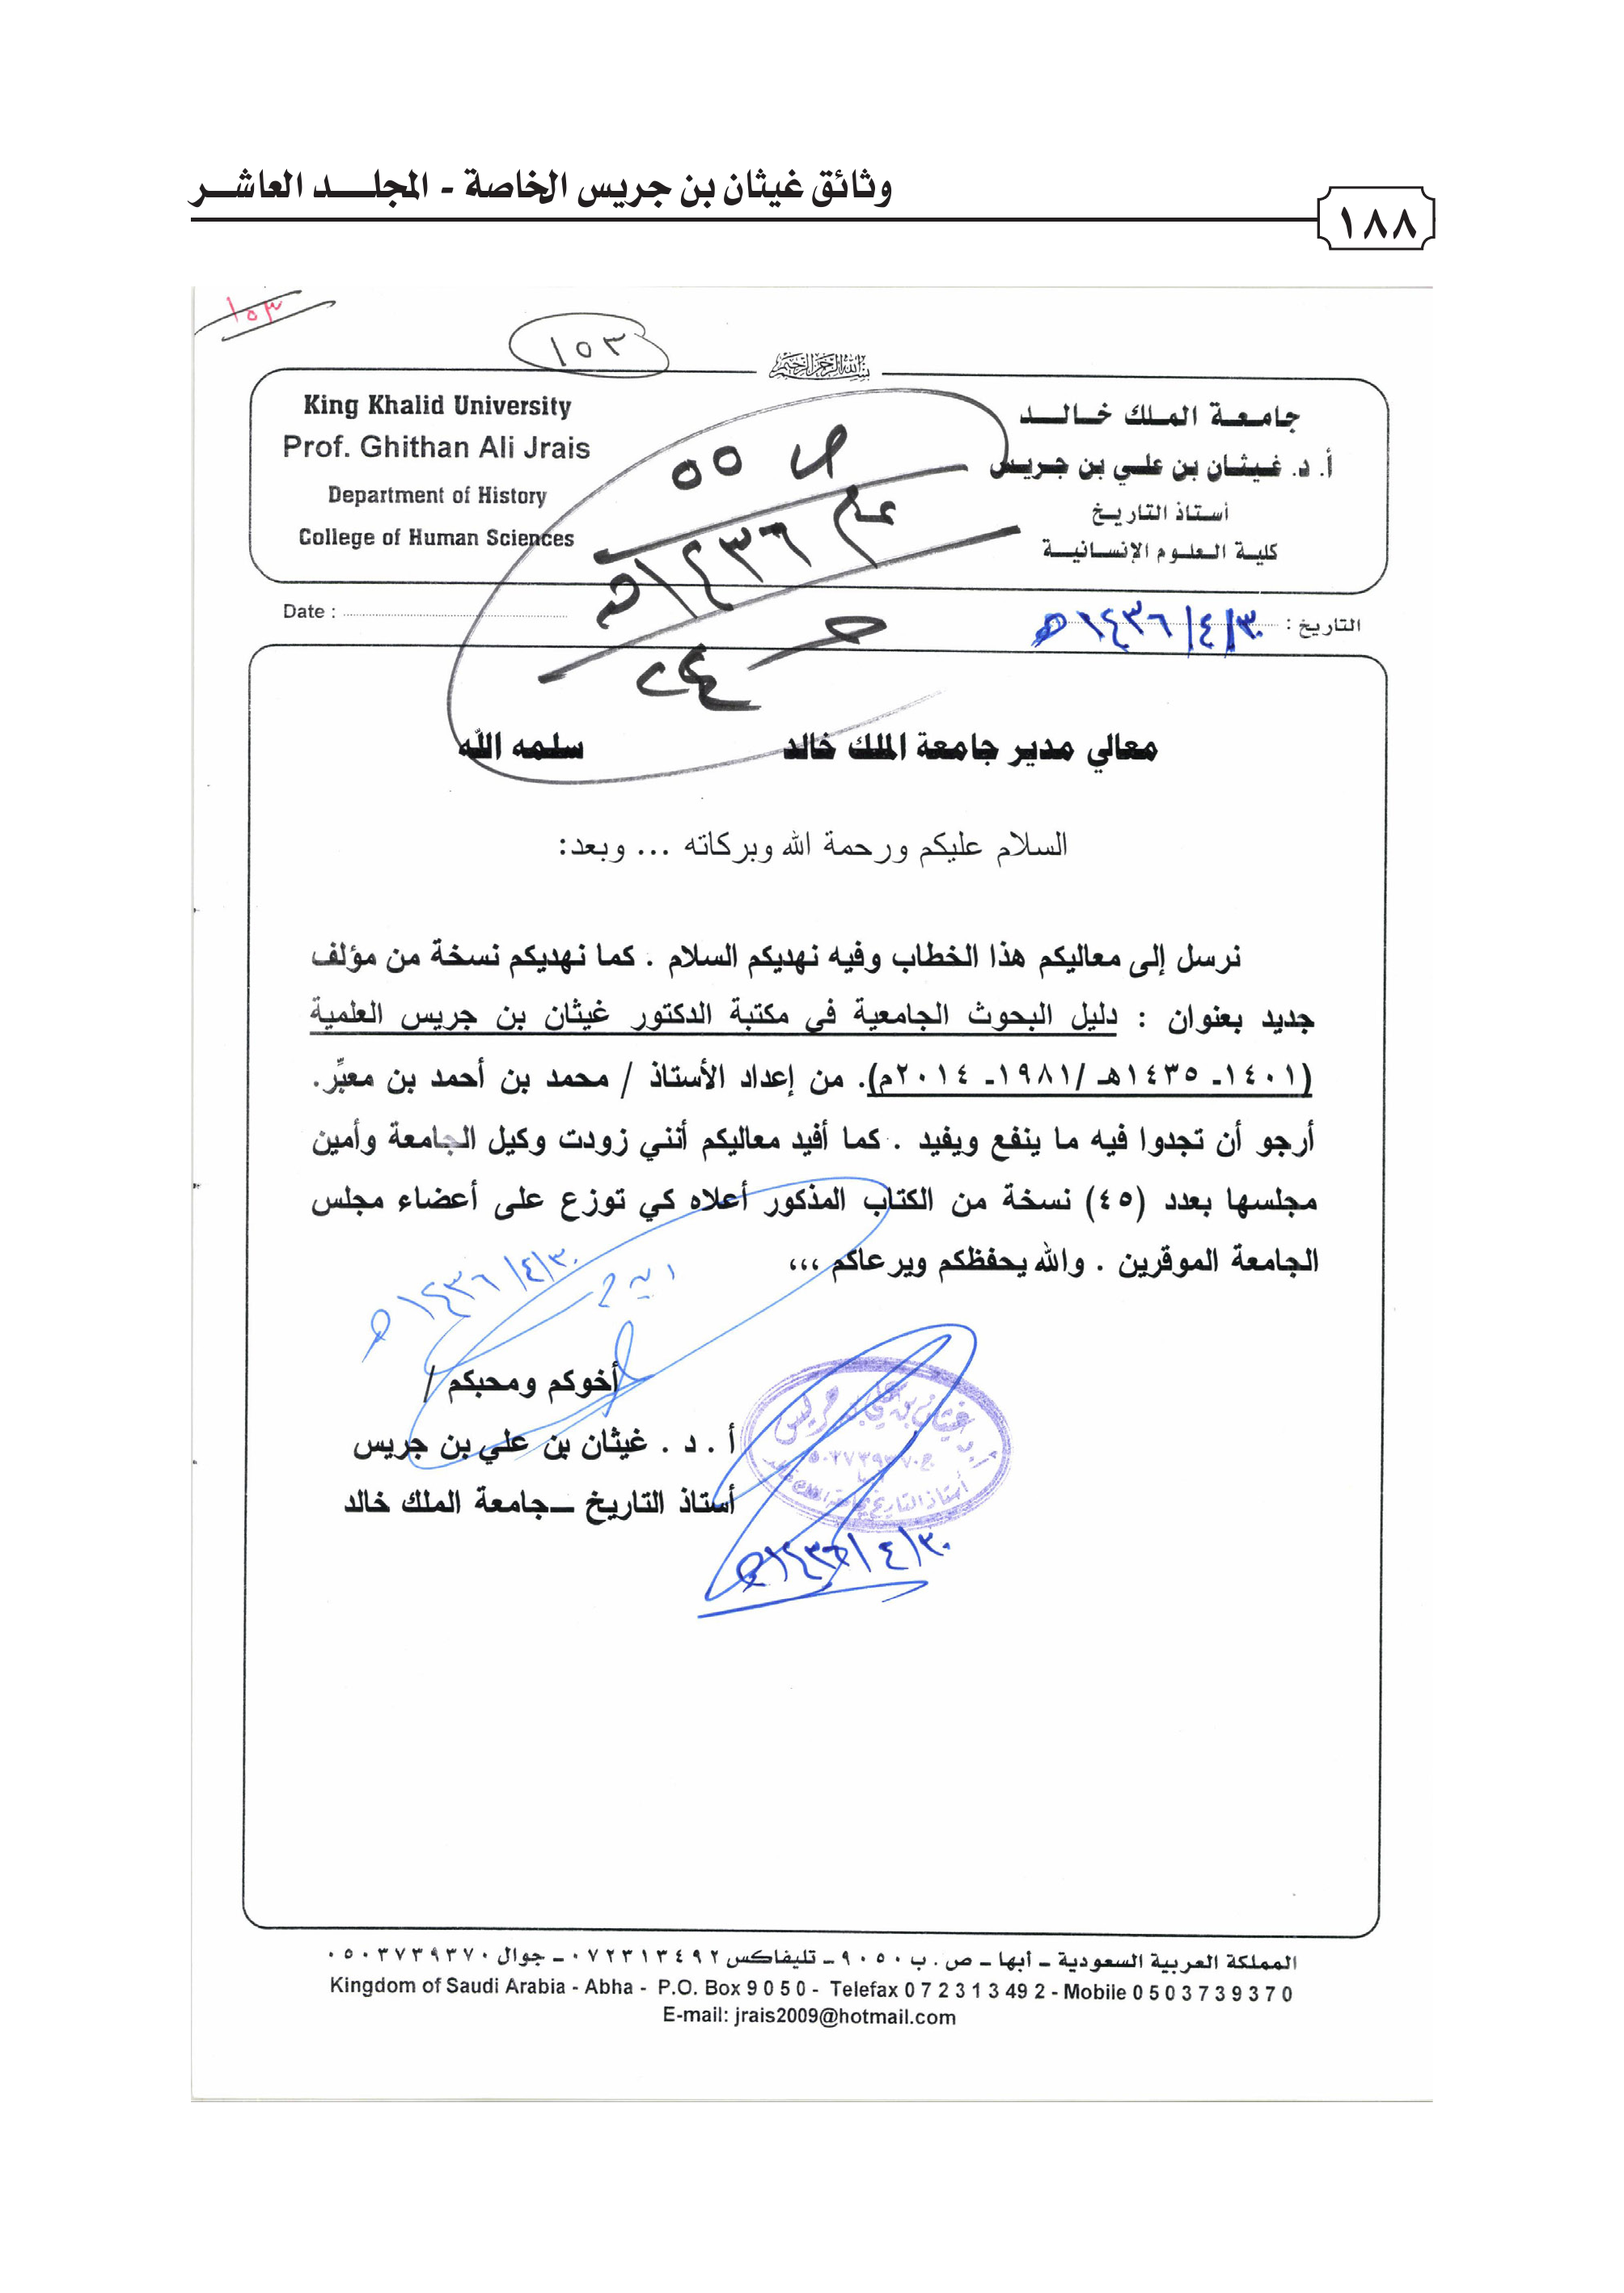 وثائق غيثان بن جريس الخاصة - المجلد العاشر
١٨٨
١٥٣
١٥٣
بسم الله الرحمن الرحيم
King Khalid University
Prof. Ghithan Ali Jrais
Department of History
College of Human Sciences
جامعة الملك خالد
أ. د. غيثان بن علي بن جريس
أستاذ التاريخ
كلية العلوم الإنسانية
ص ٥٥
١٤٣٦هـ
Date :
التاريخ : ٣٠/٤/١٤٣٦هـ
معالي مدير جامعة الملك خالد سلمه الله
السلام عليكم ورحمة الله وبركاته ... وبعد:
نرسل إلى معاليكم هذا الخطاب وفيه نهديكم السلام . كما نهديكم نسخة من مؤلف
جديد بعنوان : دليل البحوث الجامعية في مكتبة الدكتور غيثان بن جريس العلمية
(١٤٠١ـ ١٤٣٥هـ /١٩٨١ـ ٢٠١٤م). من إعداد الأستاذ / محمد بن أحمد بن معبِّر.
أرجو أن تجدوا فيه ما ينفع ويفيد . كما أفيد معاليكم أنني زودت وكيل الجامعة وأمين
مجلسها بعدد (٤٥) نسخة من الكتاب المذكور أعلاه كي توزع على أعضاء مجلس
الجامعة الموقرين . والله يحفظكم ويرعاكم ،،،
٣٠/٤/١٤٣٦هـ
أخوكم ومحبكم /
أ . د . غيثان بن علي بن جريس
أستاذ التاريخ ـ جامعة الملك خالد
أ.د. غيثان بن علي بن جريس
ج٠٥٠٣٧٣٩٣٧٠
أستاذ التاريخ بجامعة الملك خالد
٣٠/٤/١٤٣٦هـ
المملكة العربية السعودية ـ أبها ـ ص . ب ٩٠٥٠ ـ تليفاكس ٠٧٢٣١٣٤٩٢ ـ جوال ٠٥٠٣٧٣٩٣٧٠
Kingdom of Saudi Arabia - Abha - P.O. Box 9 0 5 0 - Telefax 0 7 2 3 1 3 49 2 - Mobile 0 5 0 3 7 3 9 3 7 0
E-mail: jrais2009@hotmail.com